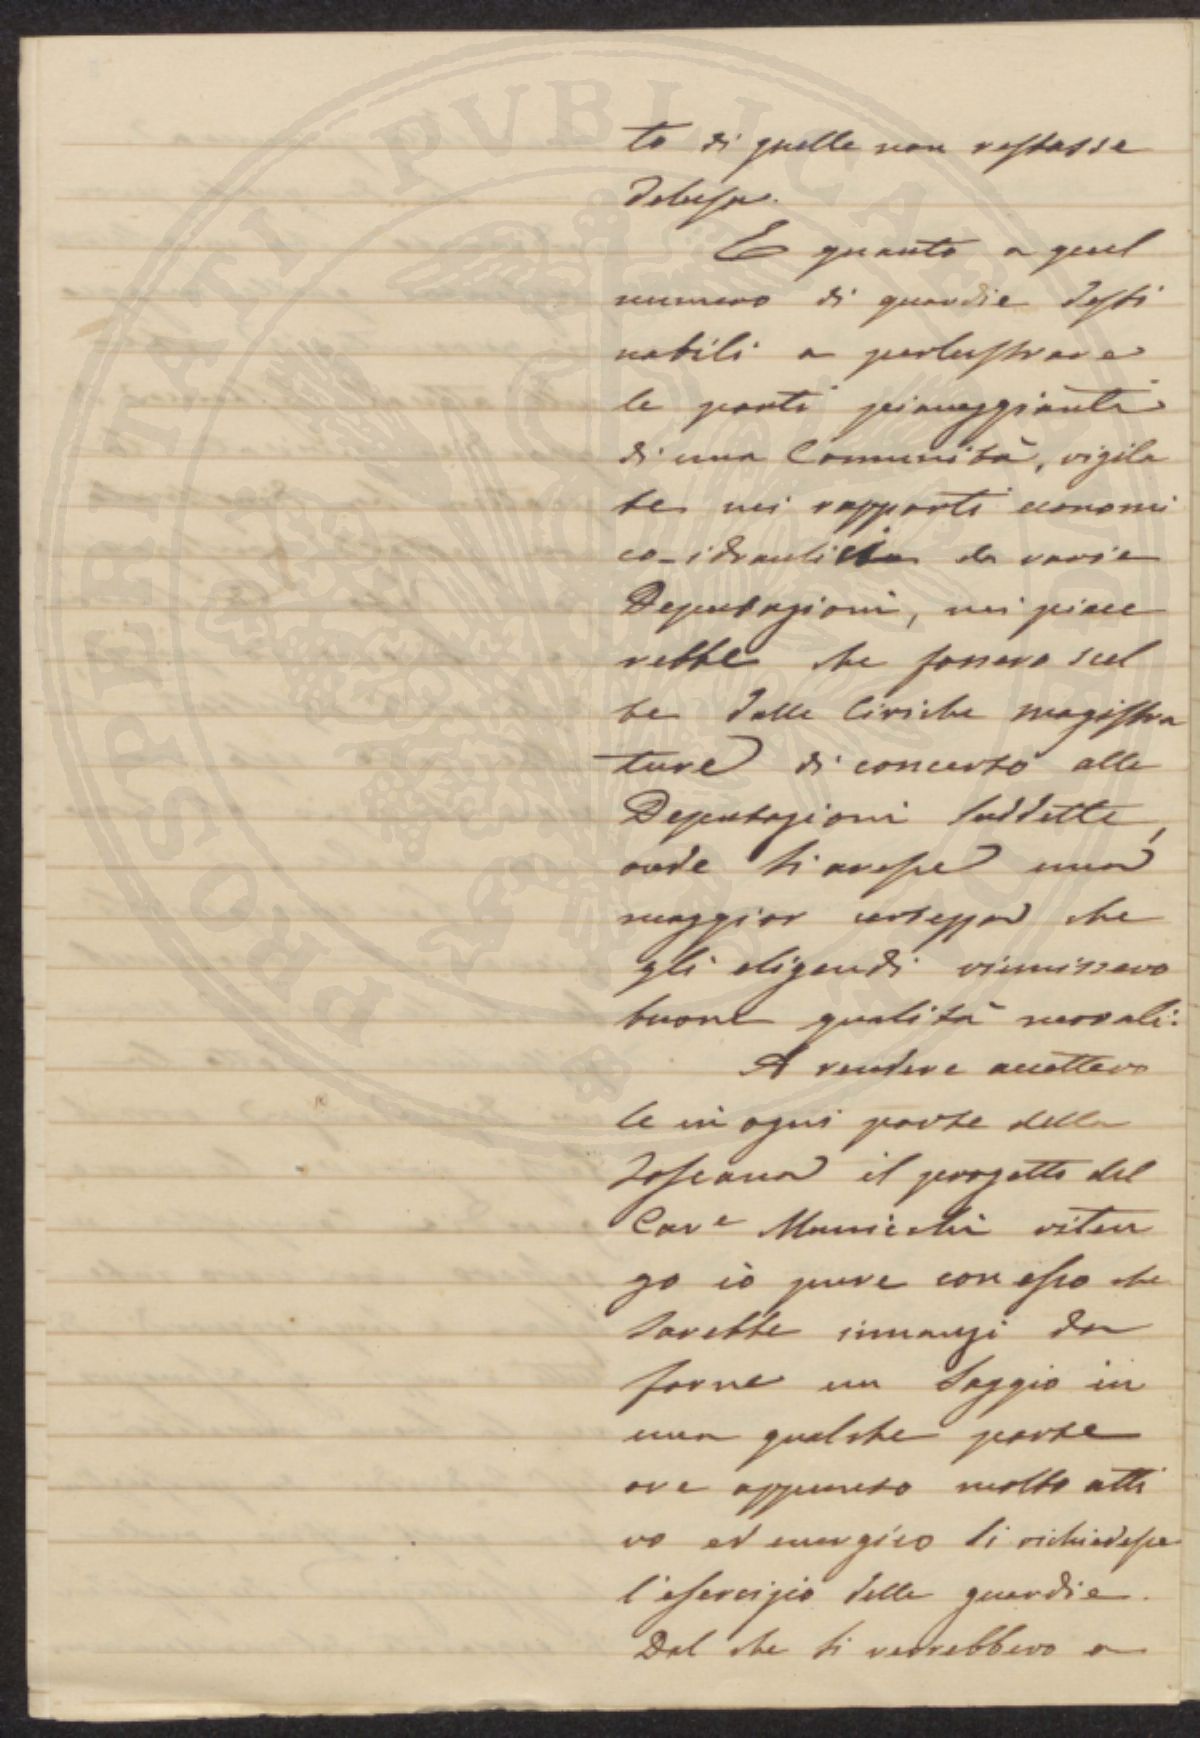 PROSPERITATI PVBLICAE
to di quelle non restasse
delusa.
E quanto a quel
numero di guardie desti
nabili a perlustrare
le parti pianeggianti
di una Comunità, vigila
te nei rapporti economi
co-idraulici da varie
Deputazioni, mi piace
rebbe che fossero scel
te dalle Civiche magistra
ture di concerto alle
Deputazioni suddette,
onde si avesse una
maggior certezza che
gli eligendi riunissero
buone qualità morali.
A rendere accettevo
le in ogni parte della
Toscana il progetto del
Cav.e Municchi riten
go io pure con esso che
sarebbe innanzi da
farne un saggio in
una qualche parte
ove appunto molto atti
vo ed energico si richiedesse
l'esercizio delle guardie.
Dal che si verrebbero a